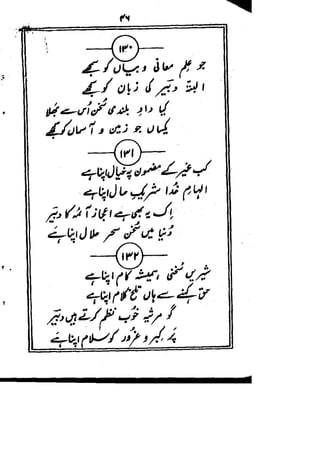 ۳۶
۱۳۰
جو علمِ معانی و بیاں کو سمجھے
البتہ دبیر کی زباں کو سمجھے
کیا دادِ بلندیِ سخن اُس سے بھلا
یکساں جو زمین و آسماں کو سمجھے
۱۳۱
کب غیر کے مضموں پہ خیال اپنا ہے
الہامِ خدا شریکِ حال اپنا ہے
اک یہ بھی ہے اعجازِ آئمہ کا دبیر
دُنیا میں سخن سحرِ حلال اپنا ہے
۱۳۲
شیریں سخنی ہمیشہ کام اپنا ہے
حق کہنے سے ہاں تلخ کلام اپنا ہے
گو مرثیہ خوب نظم کرتے ہیں دبیر
پر کبر و غرور کو سلام اپنا ہے